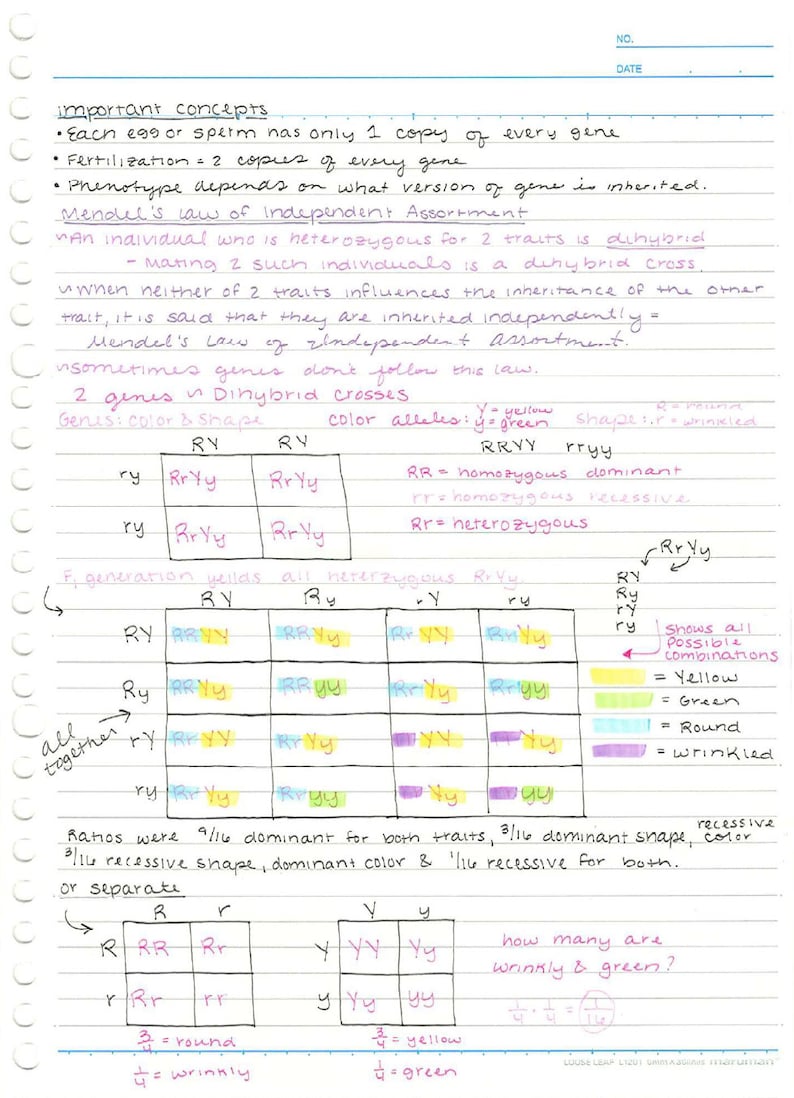 NO.
DATE . .
important concepts
• Each egg or sperm has only 1 copy of every gene
• Fertilization = 2 copies of every gene
• Phenotype depends on what version of gene is inherited.
Mendel's Law of Independent Assortment
~An individual who is heterozygous for 2 traits is dihybrid
- Mating 2 such individuals is a dihybrid cross.
~When neither of 2 traits influences the inheritance of the other
trait, it is said that they are inherited independently =
Mendel's Law of Independent Assortment.
~Sometimes genes don't follow this law.
2 genes ~ Dihybrid Crosses
Genes: Color & Shape color alleles: Y = yellow shape: R = round
y = green r = wrinkled
RY RY RRYY rryy
ry RrYy RrYy RR = homozygous dominant
rr = homozygous recessive
ry RrYy RrYy Rr = heterozygous
RrYy
F1 generation yeilds all heterzygous RrYy.
RY
Ry
rY
ry
Shows all
possible
combinations
RY Ry rY ry
RY RRYY RRYy RrYY RrYy
Ry RRYy RRyy RrYy Rryy
rY RrYY RrYy YY rr Yy
ry RrYy Rryy Yy yy
all
together
= Yellow
= Green
= Round
= Wrinkled
Ratios were 9/16 dominant for both traits, 3/16 dominant shape, recessive color
3/16 recessive shape, dominant color & 1/16 recessive for both.
or separate
R r
R RR Rr
r Rr rr
3/4 = round
1/4 = wrinkly
Y y
Y YY Yy
y Yy yy
3/4 = yellow
1/4 = green
how many are
wrinkly & green?
1/4 · 1/4 = 1/16
LOOSE LEAF L1201 maruman